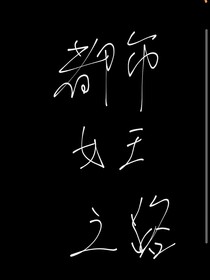 都市
女王
之路